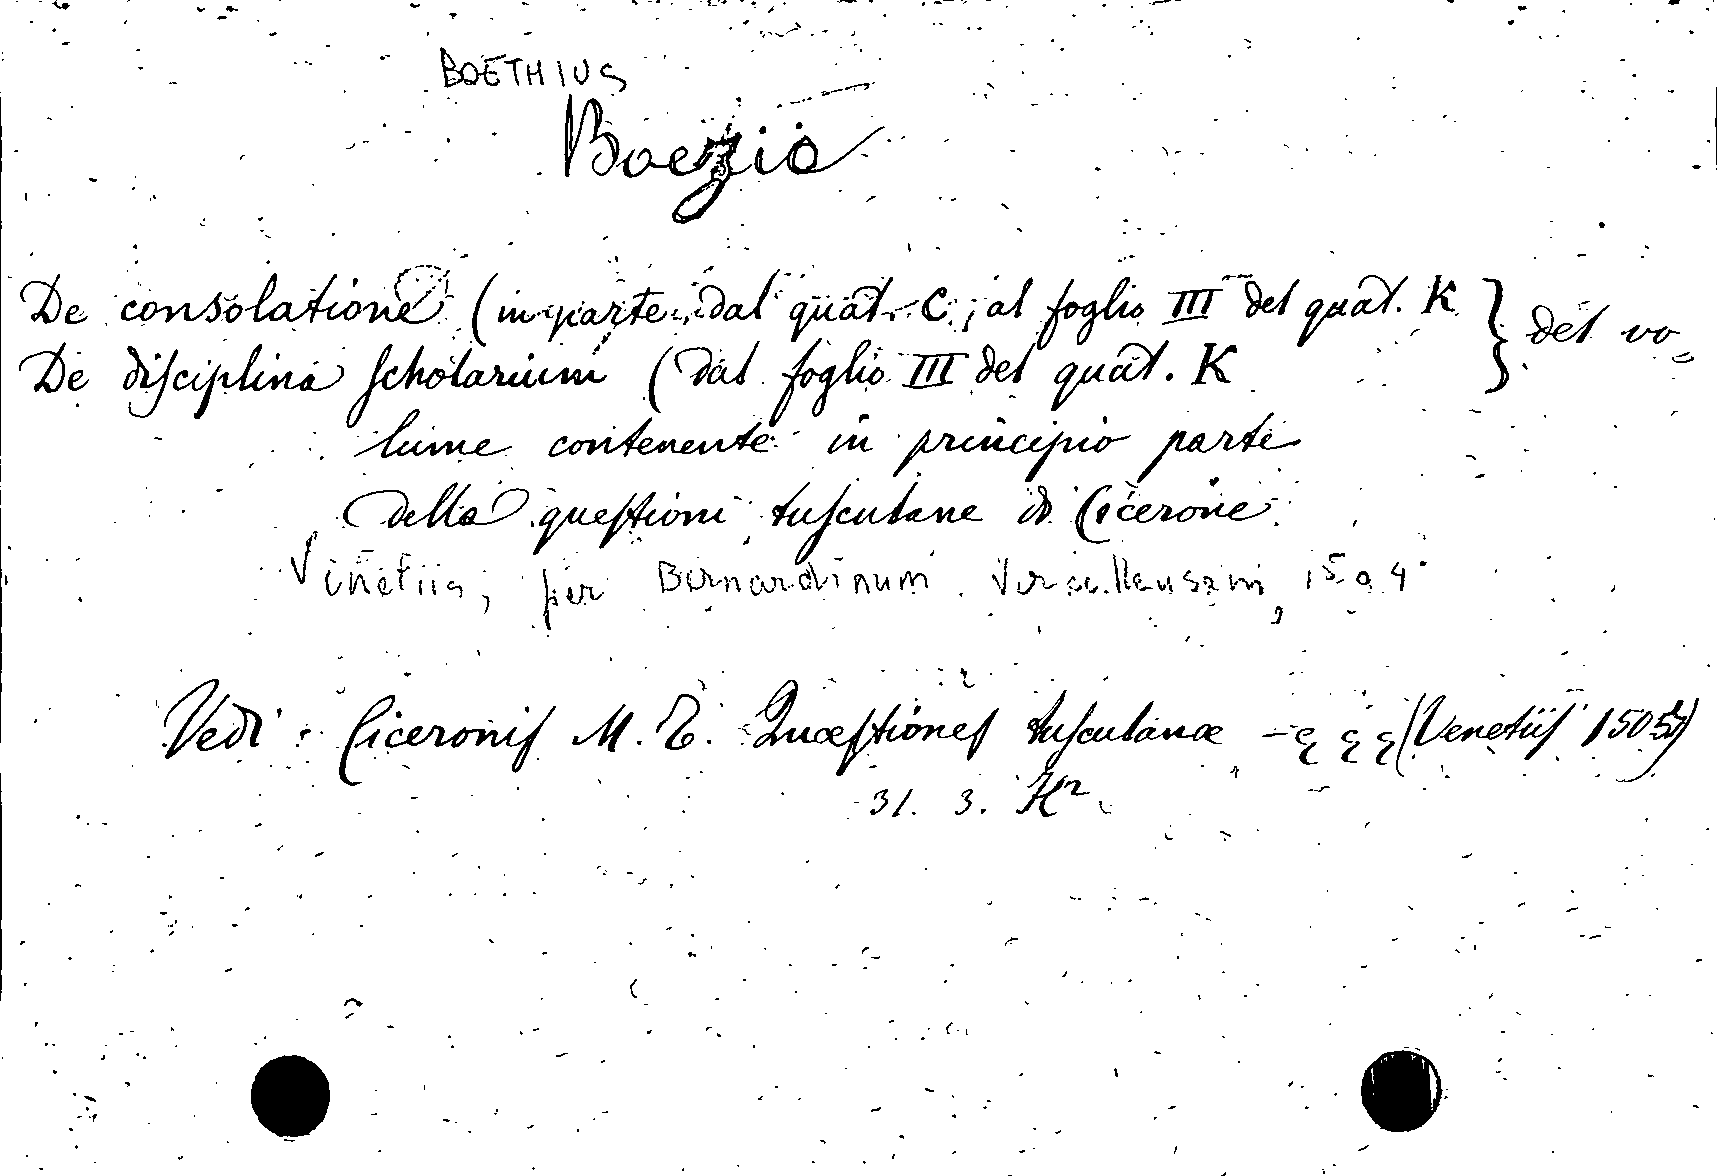 BOETHIUS
Boezio
De consolatione (in parte dal quat. C, al foglio III del quat. K } del vo=
De disciplina scholarium (dal foglio III del quat. K
lume contenente in principio parte
della questioni tusculane di Cicerone
Vinetiis, per Bernardinum Vercellensem, 1504
Vedi: Ciceronis M. T. Quæstiones tusculanæ - (Venetiis 1505)
31. 3. H²